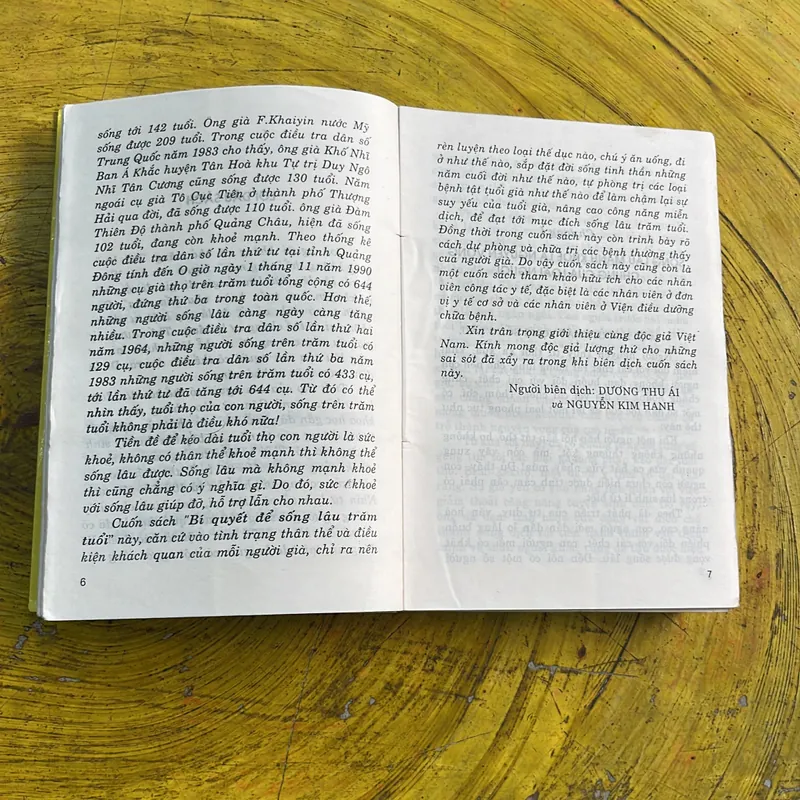 sống tới 142 tuổi. Ông già F.Khaiyin nước Mỹ
sống được 209 tuổi. Trong cuộc điều tra dân số
Trung Quốc năm 1983 cho thấy, ông già Khố Nhĩ
Ban Á Khắc huyện Tân Hoà khu Tự trị Duy Ngô
Nhĩ Tân Cương cũng sống được 130 tuổi. Năm
ngoái cụ già Tô Cục Tiên ở thành phố Thượng
Hải qua đời, đã sống được 110 tuổi. ông già Đàm
Thiên Độ thành phố Quảng Châu, hiện đã sống
102 tuổi, đang còn khoẻ mạnh. Theo thống kê
cuộc điều tra dân số lần thứ tư tại tỉnh Quảng
Đông tính đến O giờ ngày 1 tháng 11 năm 1990
những cụ già thọ trên trăm tuổi tổng cộng có 644
người, đứng thứ ba trong toàn quốc. Hơn thế,
những người sống lâu càng ngày càng tăng
nhiều. Trong cuộc điều tra dân số lần thứ hai
năm 1964, những người sống trên trăm tuổi có
129 cụ, cuộc điều tra dân số lần thứ ba năm
1983 những người sống trên trăm tuổi có 433 cụ,
tới lần thứ tư đã tăng tới 644 cụ. Từ đó có thể
nhìn thấy, tuổi thọ của con người, sống trên trăm
tuổi không phải là điều khó nữa!
Tiền đề để kéo dài tuổi thọ con người là sức
khoẻ, không có thân thể khoẻ mạnh thì không thể
sống lâu được. Sống lâu mà không mạnh khoẻ
thì cũng chẳng có ý nghĩa gì. Do đó, sức khoẻ
với sống lâu giúp đỡ, hỗ trợ lẫn cho nhau.
Cuốn sách "Bí quyết để sống lâu trăm
tuổi" này, căn cứ vào tình trạng thân thể và điều
kiện khách quan của mỗi người già, chỉ ra nên
6
rèn luyện theo loại thể dục nào, chú ý ăn uống, đi
ở như thế nào, sắp đặt đời sống tinh thần những
năm cuối đời như thế nào, tự phòng trị các loại
bệnh tật tuổi già như thế nào để làm chậm lại sự
suy yếu của tuổi già, nâng cao công năng miễn
dịch, để đạt tới mục đích sống lâu trăm tuổi.
Đồng thời trong cuốn sách này còn trình bày rõ
cách dự phòng và chữa trị các bệnh thường thấy
của người già. Do vậy cuốn sách này cũng còn là
một cuốn sách tham khảo hữu ích cho các nhân
viên công tác y tế, đặc biệt là các nhân viên ở đơn
vị y tế cơ sở và các nhân viên ở Viện điều dưỡng
chữa bệnh.
Xin trân trọng giới thiệu cùng độc giả Việt
Nam. Kính mong độc giả lượng thứ cho những
sai sót đã xẩy ra trong khi biên dịch cuốn sách
này.
Người biên dịch: DƯƠNG THU ÁI
và NGUYỄN KIM HANH
7